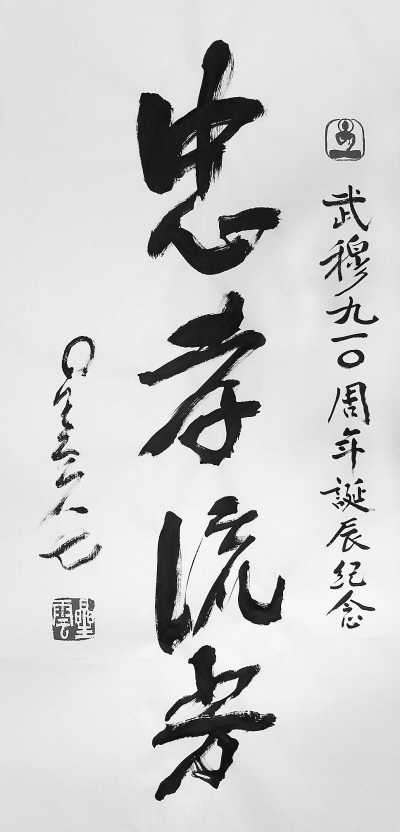 武穆九一〇周年誕辰紀念
忠孝流芳
星云八七
星雲